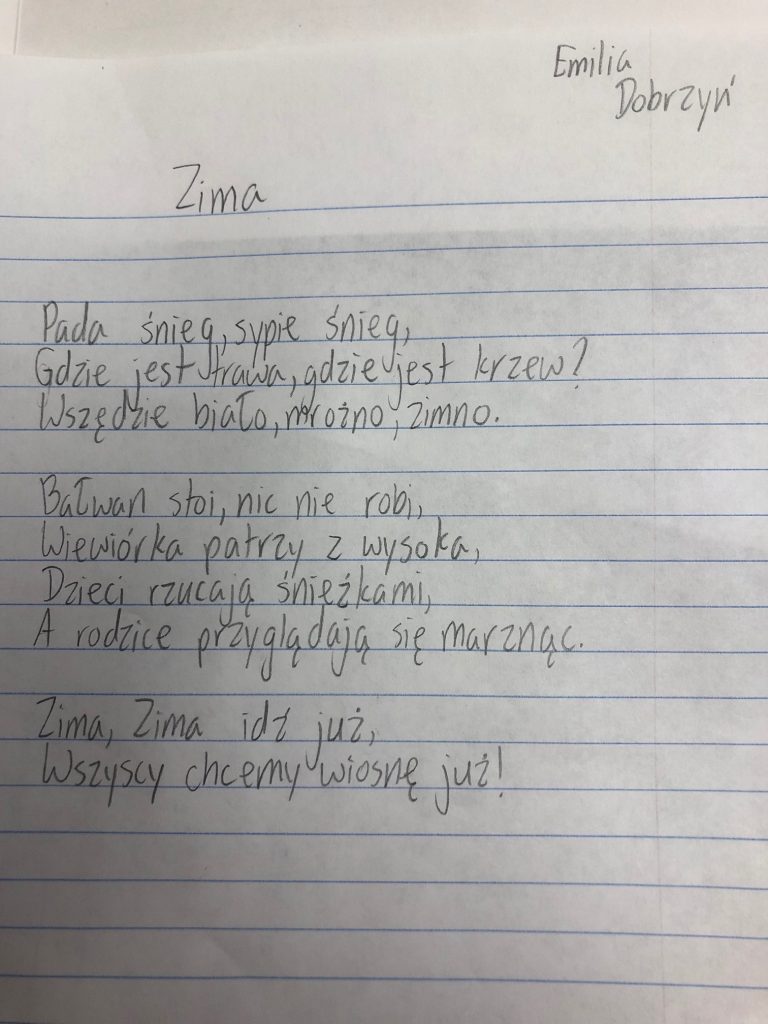 Emilia
Dobrzyń
Zima
Pada śnieg, sypie śnieg,
Gdzie jest trawa, gdzie jest krzew?
Wszędzie biało, mroźno, zimno.
Bałwan stoi, nic nie robi,
Wiewiórka patrzy z wysoka,
Dzieci rzucają śnieżkami,
A rodzice przyglądają się marznąc.
Zima, Zima idź już,
Wszyscy chcemy wiosnę już!